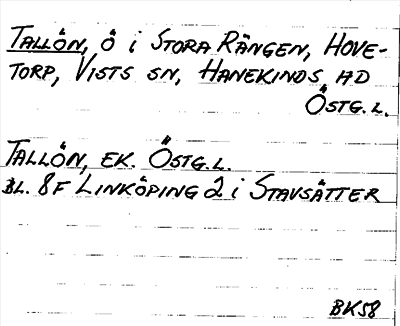 TALLÖN, Ö i STORA RÄNGEN, HOVE-
TORP, VISTS SN, HANEKINDS HD
ÖSTG.L.
TALLÖN, EK. ÖSTG.L.
BL. 8F LINKÖPING 2 i STAVSÄTTER
BK58